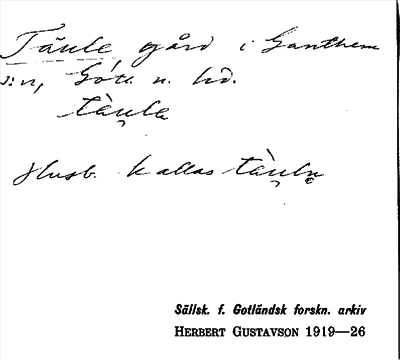 Täule, gård i Ganthem
s:n, Götl. n. hd.
tàu̯la
Husb. kallas tàu̯ln̥
Sällsk. f. Gotländsk forskn. arkiv
HERBERT GUSTAVSON 1919—26